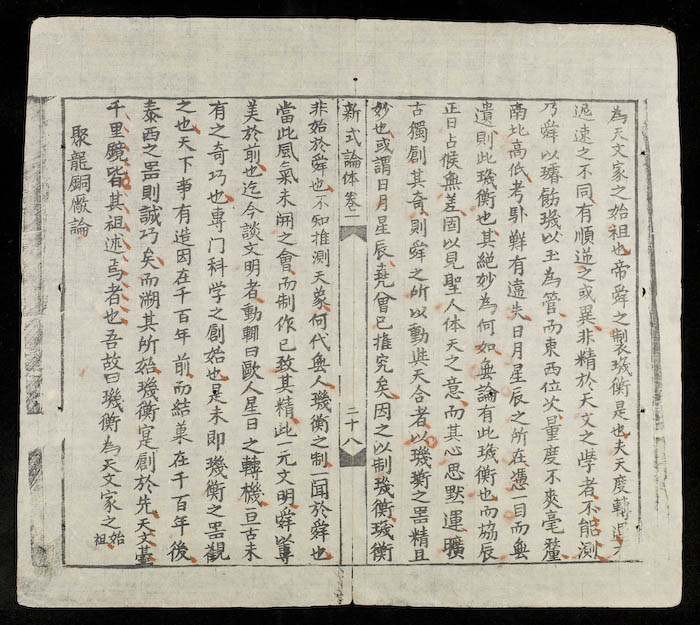 為天文家之始祖也帝舜之製璣衡是也夫天度轉運
遲速之不同有順逆之或異非精於天文之學者不能測
乃舜以璿飭璣以玉為管而東西位次量度不爽毫釐
南北高低考驗難有違失日月星辰之所在憑一目而無
遺則此璣衡也其絕妙為何如無論有此璣衡也而協辰
正日占候無差固以見聖人体天之意而其心思默運曠
古獨創其奇則舜之所以動與天合者以璣衡之器精且
妙也或謂日月星辰堯曾已推究矣因之以制璣衡璣衡
新式論体卷二 二十八
非始於舜也不知推測天象何代無人璣衡之制一聞於舜也
當此風氣未開之會而制作已致其精此一元文明舜以專
美於前也迄今談文明者動輒曰歐人星日之轉機亘古未
有之奇巧也專門科学之創始也是未即璣衡之器觀
之也天下事有造因在千百年前而結菓在千百年後
泰西之器則誠巧矣而溯其所始璣衡寔創於先天文臺
千里鏡皆其祖述焉者也吾故曰璣衡為天文家之始祖
聚龍銅厰論